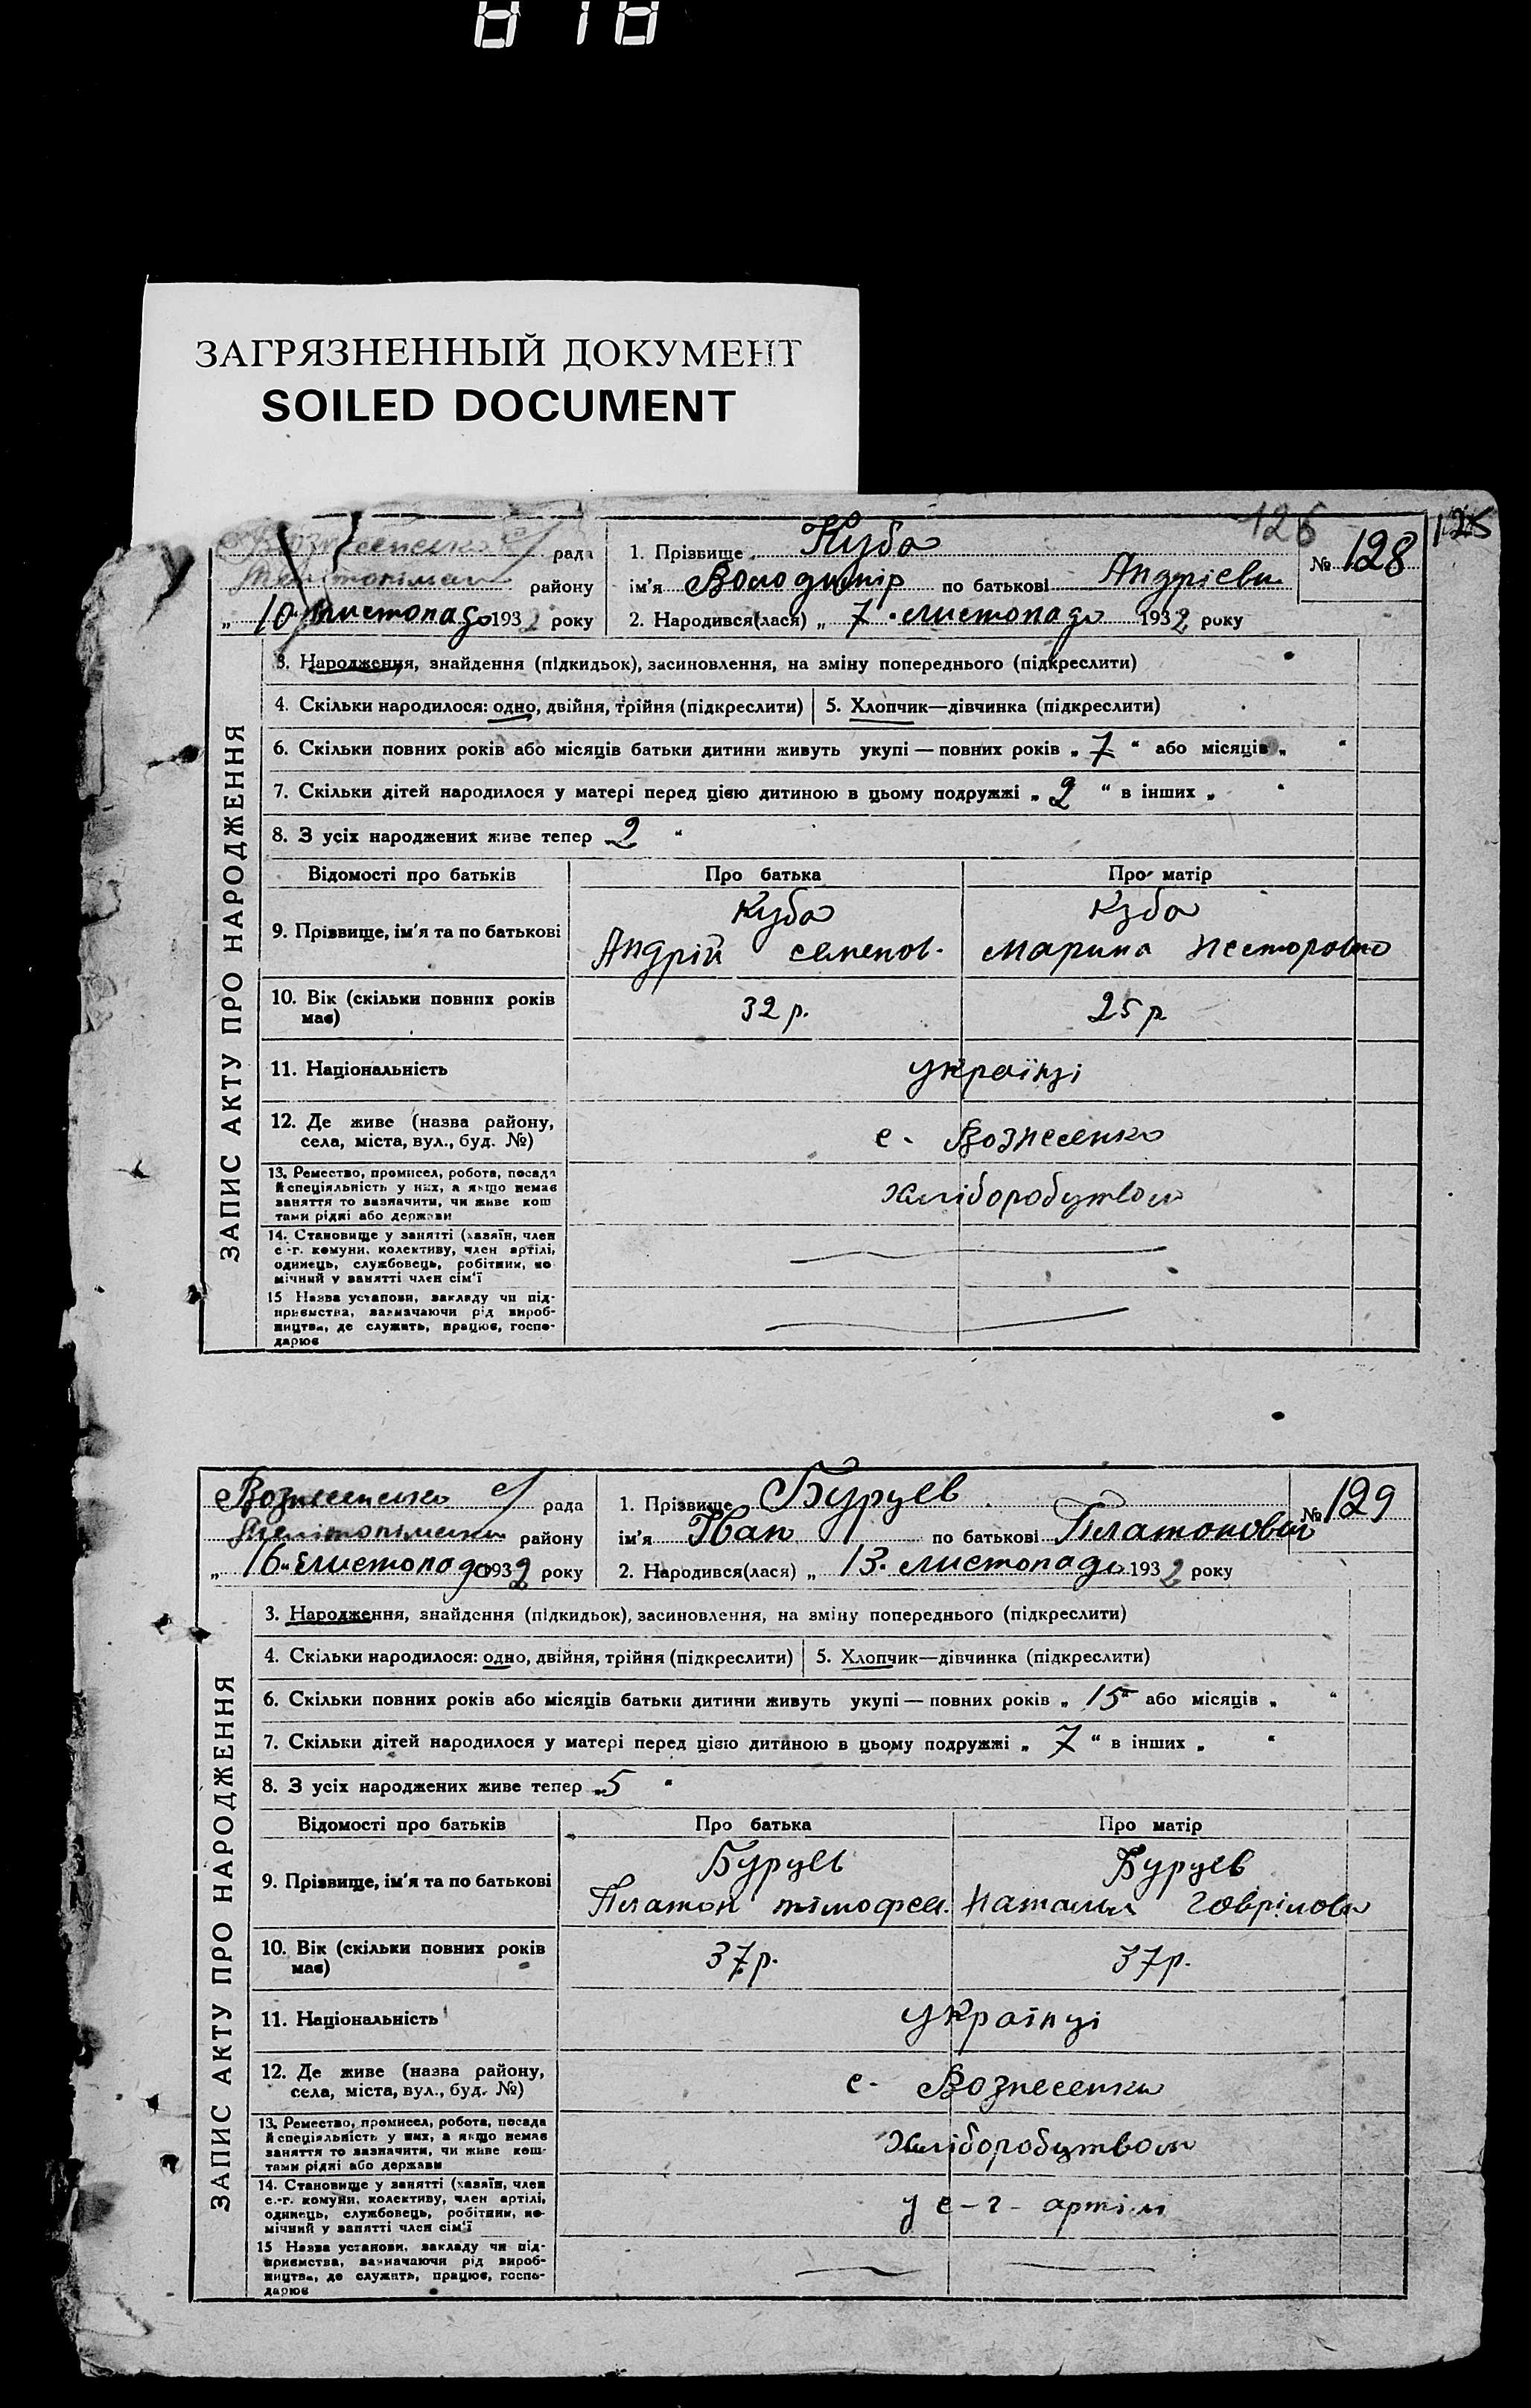 818
ЗАГРЯЗНЕННЫЙ ДОКУМЕНТ
SOILED DOCUMENT
126
125
рада
району
„ 10 " листопада 1932 року
1. Прізвище Куба
№ 128
ім'я Володимір по батькові Андрієви
2. Народився(лася) „ 7 " листопада 1932 року
ЗАПИС АКТУ ПРО НАРОДЖЕННЯ
3. Народження, знайдення (підкидьок), засиновлення, на зміну попереднього (підкреслити)
4. Скільки народилося: одно, двійня, трійня (підкреслити) 5. Хлопчик—дівчинка (підкреслити)
6. Скільки повних років або місяців батьки дитини живуть укупі — повних років „ 7 “ або місяців „ “
7. Скільки дітей народилося у матері перед цією дитиною в цьому подружжі „ 2 “ в інших „ “
8. З усіх народжених живе тепер „2 “
Відомості про батьків Про батька Про матір
9. Прізвище, ім'я та по батькові
Куба Куба
Андрій семенов. марина Несторовна
10. Вік (скільки повних років
має)
32 р. 25 р
11. Національність українці
12. Де живе (назва району,
села, міста, вул., буд. №)
с. Вознесенка
13. Ремество, промисел, робота, посада
й спеціяльність у них, а якщо немає
заняття то визначити, чи живе кош
тами рідні або держави
Хліборобутвом
14. Становище у занятті (хавяїн, член
с.-г. комуни, колективу, член артілі,
одинець, службовець, робітник, по
мічний у занятті член сім'ї
15 Назва установи, закладу чи під-
приємства, зазначаючи рід вироб-
ництва, де служить, працює, госпо-
дарює
Вознесенська с/ рада
Мелітопільськи району
„ 16 " листопада 1932 року
1. Прізвище Бурцев
№ 129
ім'я Іван по батькові Платонович
2. Народився(лася) „ 13 " листопада 1932 року
ЗАПИС АКТУ ПРО НАРОДЖЕННЯ
3. Народження, знайдення (підкидьок), засиновлення, на зміну попереднього (підкреслити)
4. Скільки народилося: одно, двійня, трійня (підкреслити) 5. Хлопчик—дівчинка (підкреслити)
6. Скільки повних років або місяців батьки дитини живуть укупі — повних років „ 15 “ або місяців „ “
7. Скільки дітей народилося у матері перед цією дитиною в цьому подружжі „ 7 “ в інших „ “
8. З усіх народжених живе тепер „5 “
Відомості про батьків Про батька Про матір
9. Прізвище, ім'я та по батькові
Бурцев Бурцев
Платон тімофеи. Наталія Говрілови
10. Вік (скільки повних років
має)
37р. 37р.
11. Національність українці
12. Де живе (назва району,
села, міста, вул., буд. №)
с. Вознесенки
13. Ремество, промисел, робота, посада
й спеціяльність у них, а якщо немає
заняття то зазначити, чи живе кош-
тами рідні або держави
Хліборобутвом
14. Становище у занятті (хавяїн, член
с.-г. комуни, колективу, член артілі,
одинець, службовець, робітник, по-
мічний у занятті член сім'ї
у с-г- артілі
15 Назва установи, закладу чи під-
приємства, зазначаючи рід вироб-
ництва, де служить, працює, госпо-
дарює